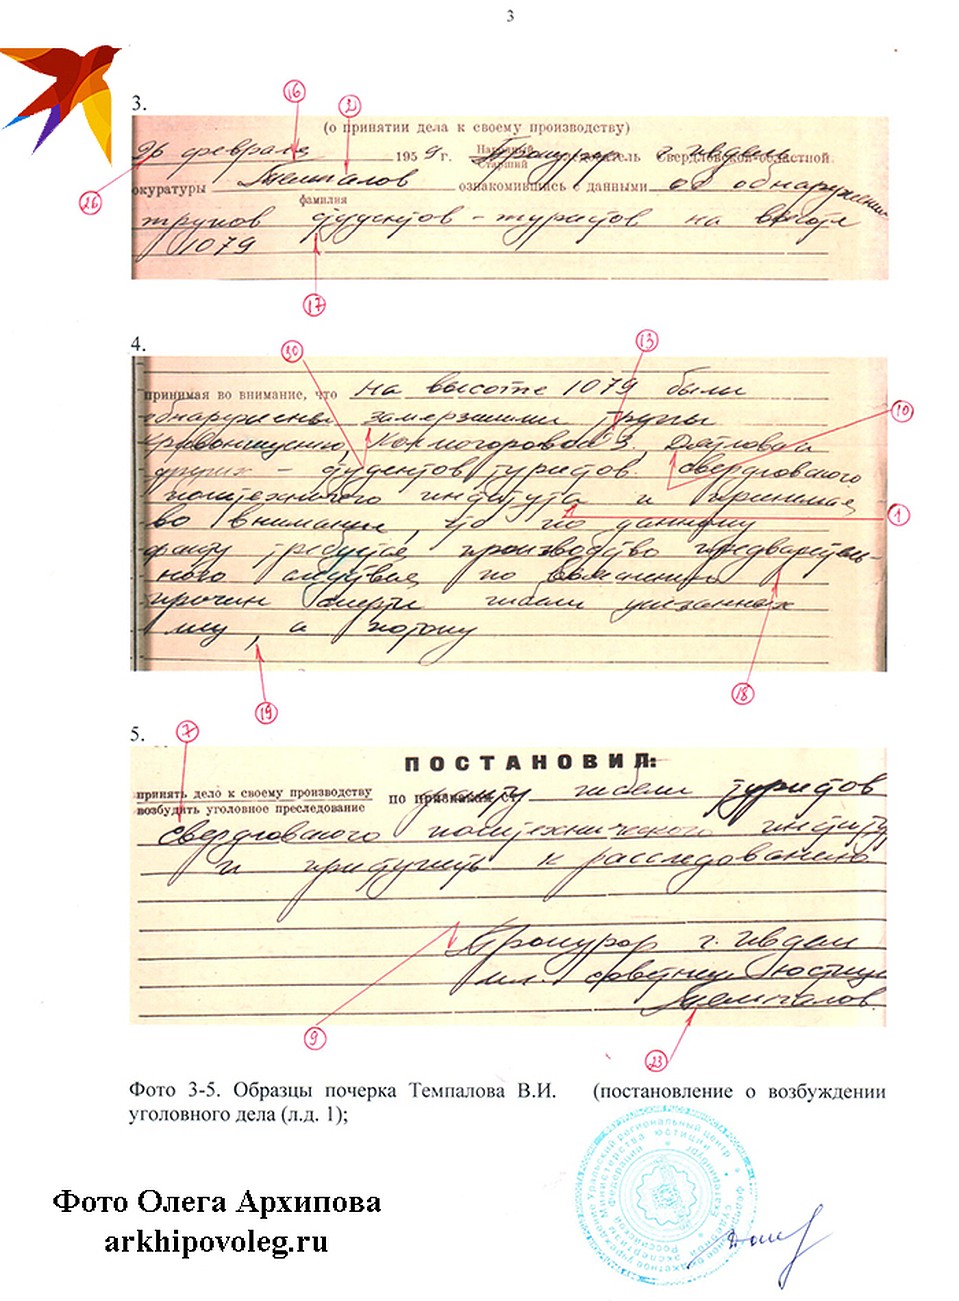 3
3.
16
2
(о принятии дела к своему производству)
26 февраля 1959 г. Народный Старший Прокурор следователь г. Ивдель Свердловской областной
26
окуратуры Темпалов ознакомившись с данными об обнаружении
фамилия
трупов студентов - туристов на высоте
1079
17
4.
30
13
принимая во внимание, что на высоте 1079 были
обнаружены замерзшими трупы
10
Колмогоровой З, Дятлова и
других - студентов туристов. Свердловского
политехничего института и принимая
1
во внимание, что по данному
факту требуется производство предваритель-
ного следствия по выяснению
причин смерти гибели указанных
лиц, а потому
18
19
7
5.
ПОСТАНОВИЛ:
принять дело к своему производству
возбудить уголовное преследование
по признакам ст. факту гибели туристов
Свердловского политехнического институ
и приступить к расследованию
Прокурор г. Ивдель
мл. советник юстиции
Темпалов
9
23
Фото 3-5. Образцы почерка Темпалова В.И. (постановление о возбуждении
уголовного дела (л.д. 1);
Фото Олега Архипова
arkhipovoleg.ru